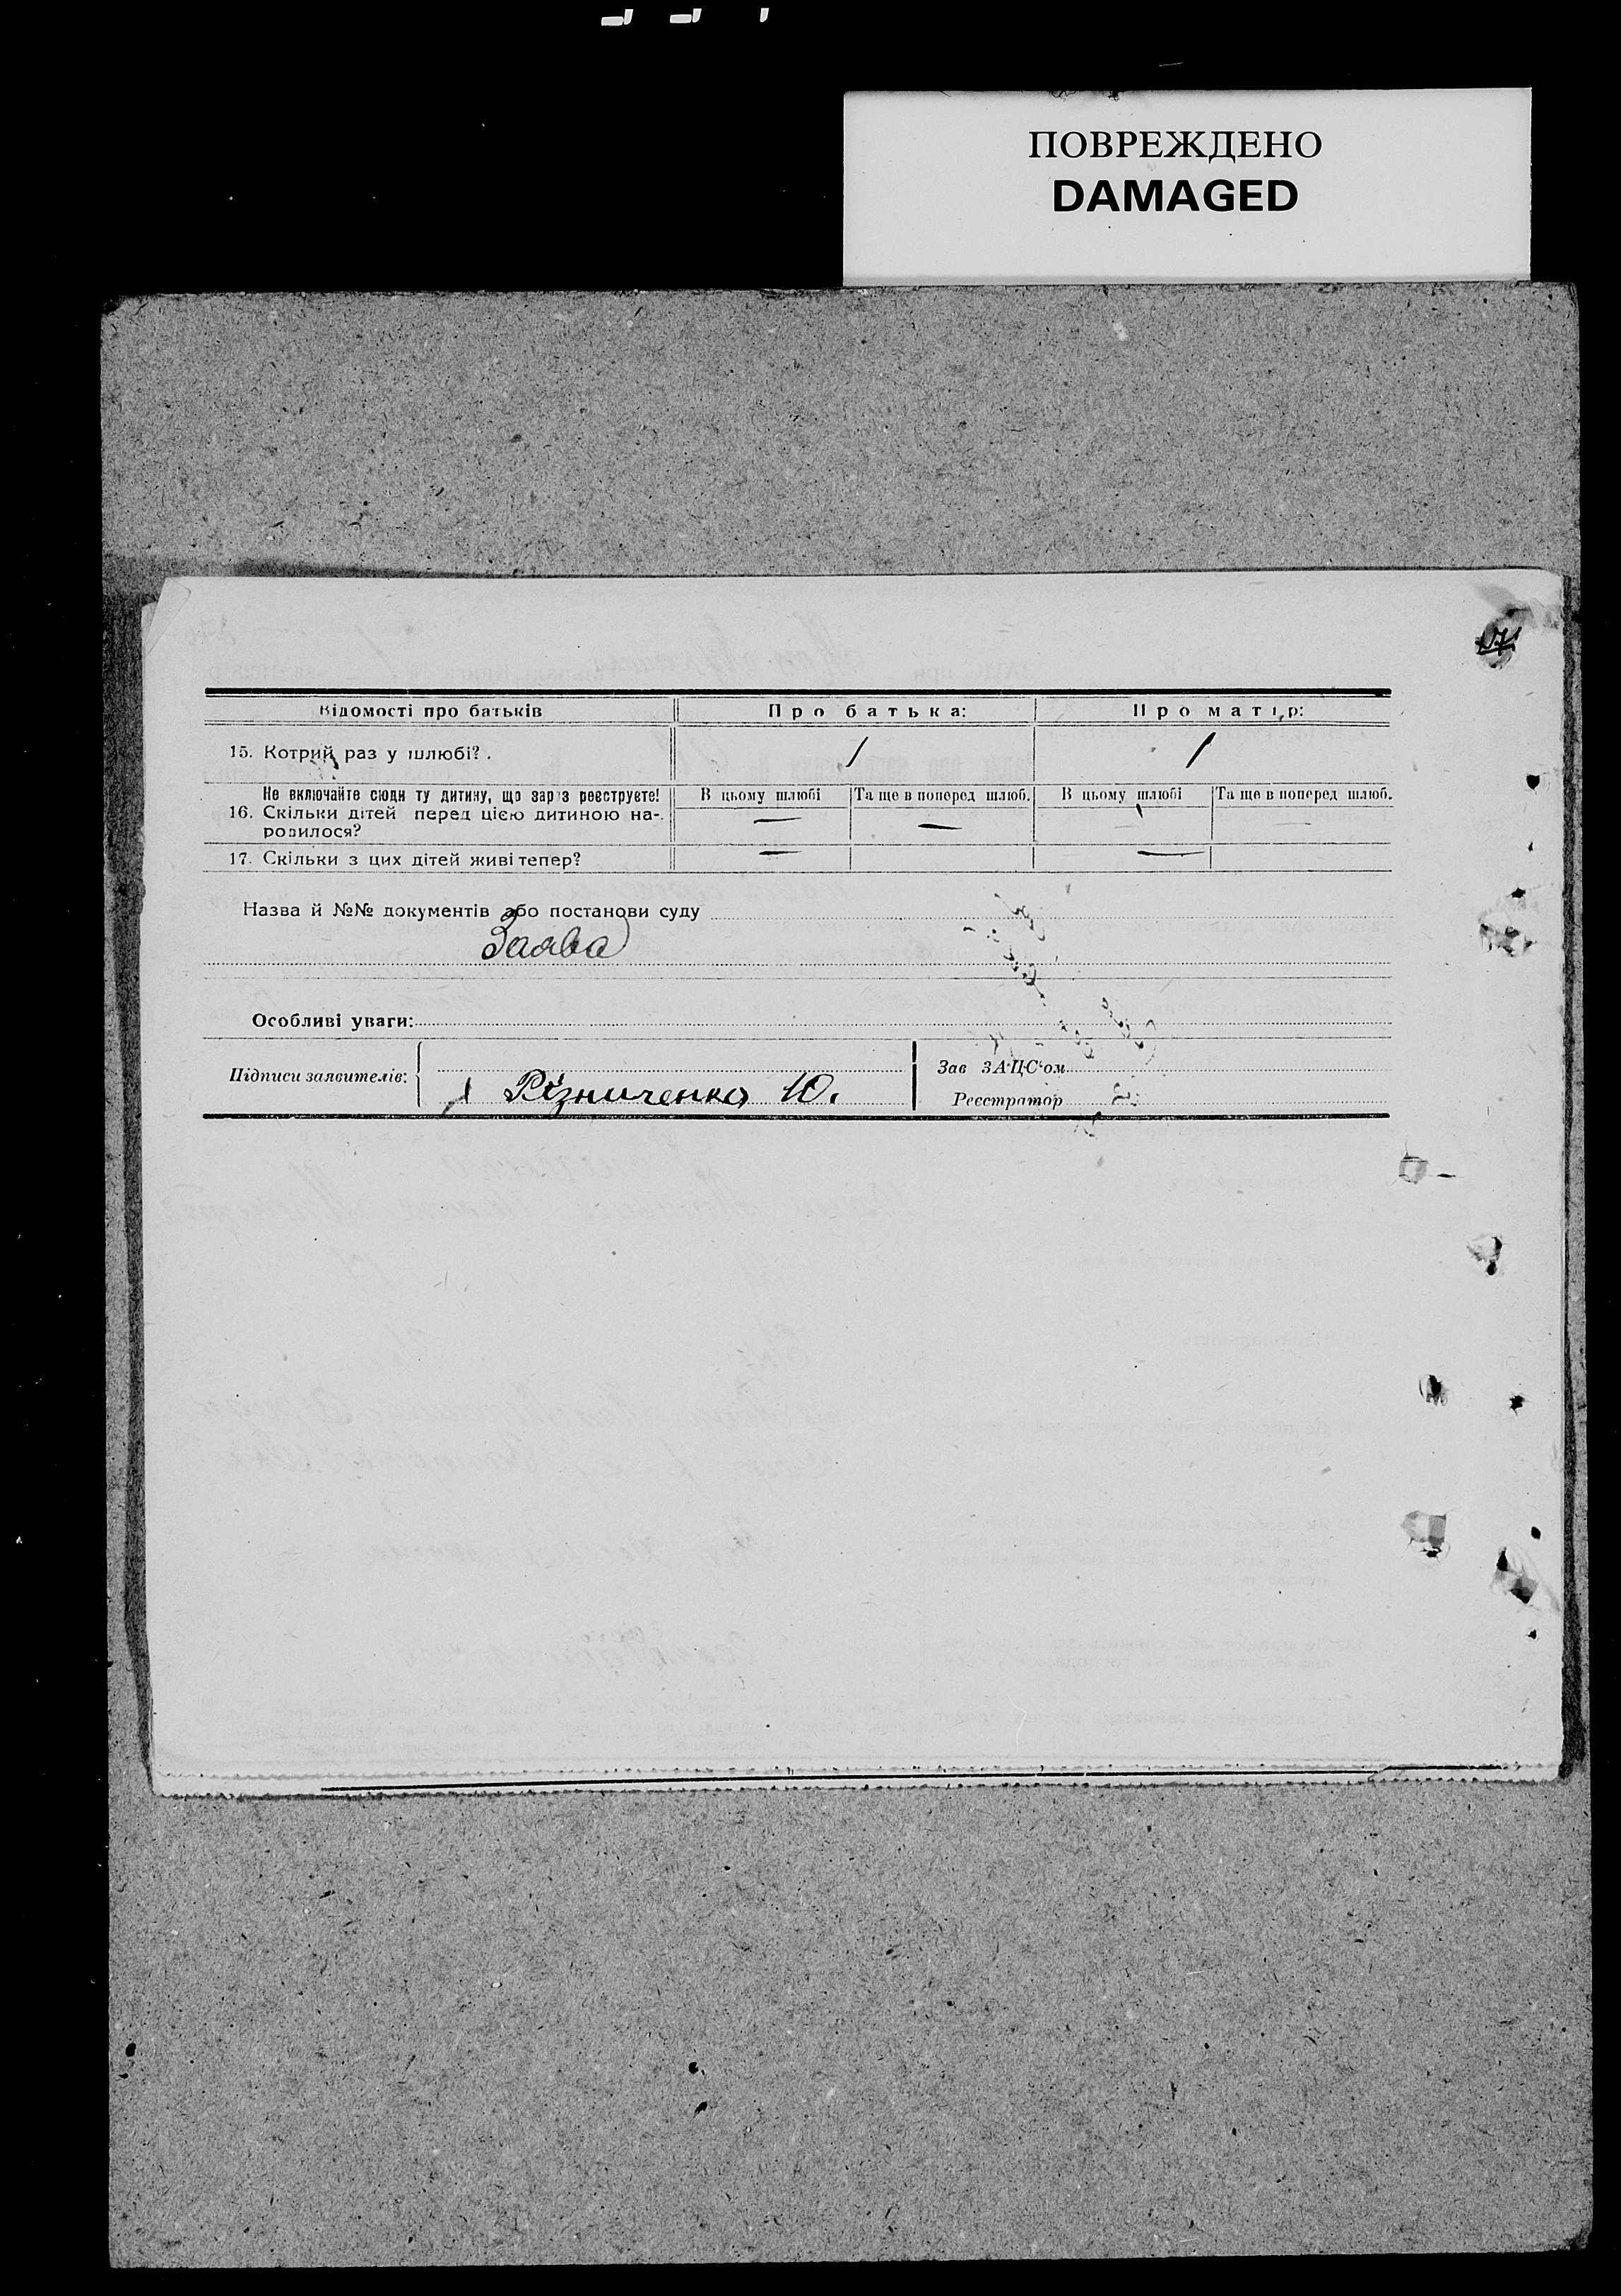 ПОВРЕЖДЕНО
DAMAGED
Відомості про батьків Про батька: Про матір:
15. Котрий раз у шлюбі? . 1 1
Не включайте сюди ту дитину, що зараз реєструєте! В цьому шлюбі Та ще в поперед шлюб. В цьому шлюбі Та ще в поперед шлюб.
16. Скільки дітей перед цією дитиною на- — — — —
родилося?
17. Скільки з цих дітей живі тепер? — —
Назва й №№ документів або постанови суду
Заява
Особливі уваги:
Зав ЗАЦС'ом
Підписи заявителів:
Різниченко Ю.
Реєстратор